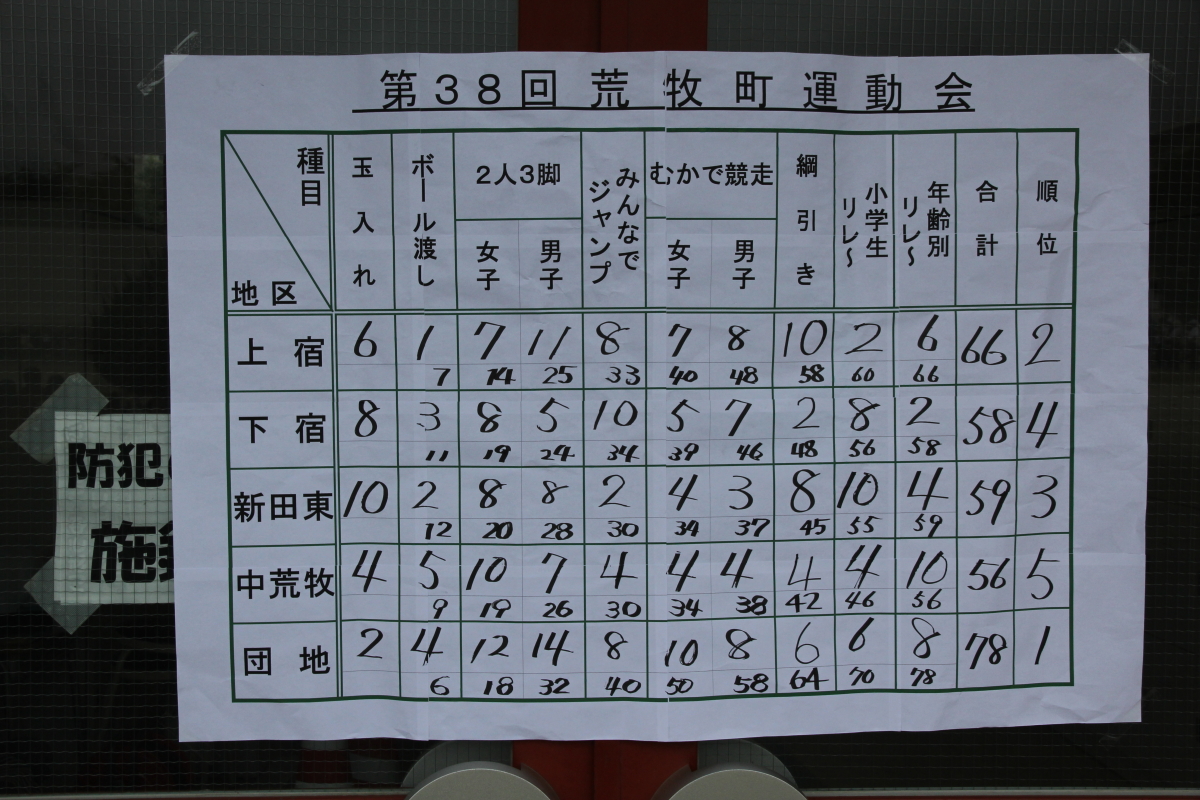 第38回 荒牧町運動会
種目 玉入れ ボール渡し 2人3脚 みんなでジャンプ むかで競走 綱引き 小学生リレ～ 年齢別リレ～ 合計 順位
地区 女子 男子 女子 男子
上宿 6 1 7 11 8 7 8 10 2 6 66 2
7 14 25 33 40 48 58 60 66
下宿 8 3 8 5 10 5 7 2 8 2 58 4
11 19 24 34 39 46 48 56 58
新田東 10 2 8 8 2 4 3 8 10 4 59 3
12 20 28 30 34 37 45 55 59
中荒牧 4 5 10 7 4 4 4 4 4 10 56 5
9 19 26 30 34 38 42 46 56
団地 2 4 12 14 8 10 8 6 6 8 78 1
6 18 32 40 50 58 64 70 78
防犯
施